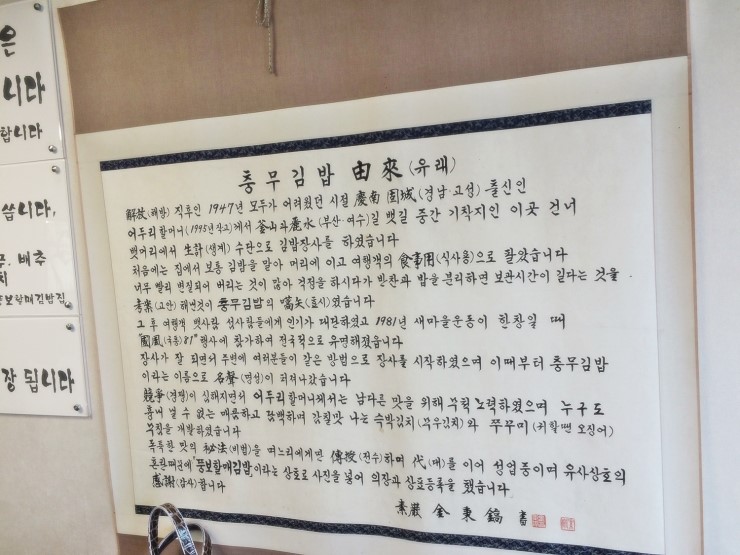 은
니다
합니다
씁니다.
배추
뚱보할매김밥집
장 됩니다
충무김밥 由來 (유래)
解放(해방) 직후인 1947년 모두가 어려웠던 시절 慶南 固城(경남·고성) 출신인
어두리할머니(1995년 작고)께서 釜山과 麗水(부산·여수)길 뱃길 중간 기착지인 이곳 건너
뱃머리에서 生計(생계) 수단으로 김밥장사를 하였습니다
처음에는 집에서 보통 김밥을 말아 머리에 이고 여행객의 食事用(식사용)으로 팔았습니다
너무 빨리 변질되어 버리는 것이 많아 걱정을 하시다가 반찬과 밥을 분리하면 보관시간이 길다는 것을
考案(고안) 해낸것이 충무김밥의 嚆矢(효시)였습니다
그 후 여행객 뱃사람 섬사람들에게 인기가 대단하였고 1981년 새마을운동이 한창일 때
"國風(국풍)81" 행사에 참가하여 전국적으로 유명해졌습니다
장사가 잘 되면서 주변에 여러분들이 같은 방법으로 장사를 시작하였으며 이때부터 충무김밥
이라는 이름으로 名聲(명성)이 퍼져나갔습니다
競爭(경쟁)이 심해지면서 어두리할머니께서는 남다른 맛을 위해 무척 노력하였으며 누구도
흉내 낼 수 없는 매콤하고 담백하며 감칠맛 나는 슥박김치(무우김치)와 쭈꾸미(귀할땐 오징어)
무침을 개발하였습니다
독특한 맛의 秘法(비법)을 며느리에게만 傳授(전수)하며 代(대)를 이어 성업중이며 유사상호의
혼란때문에 '뚱보할매김밥'이라는 상호로 사진을 넣어 의장과 상표등록을 했습니다
感謝(감사)합니다
素巖 金東鎬 書